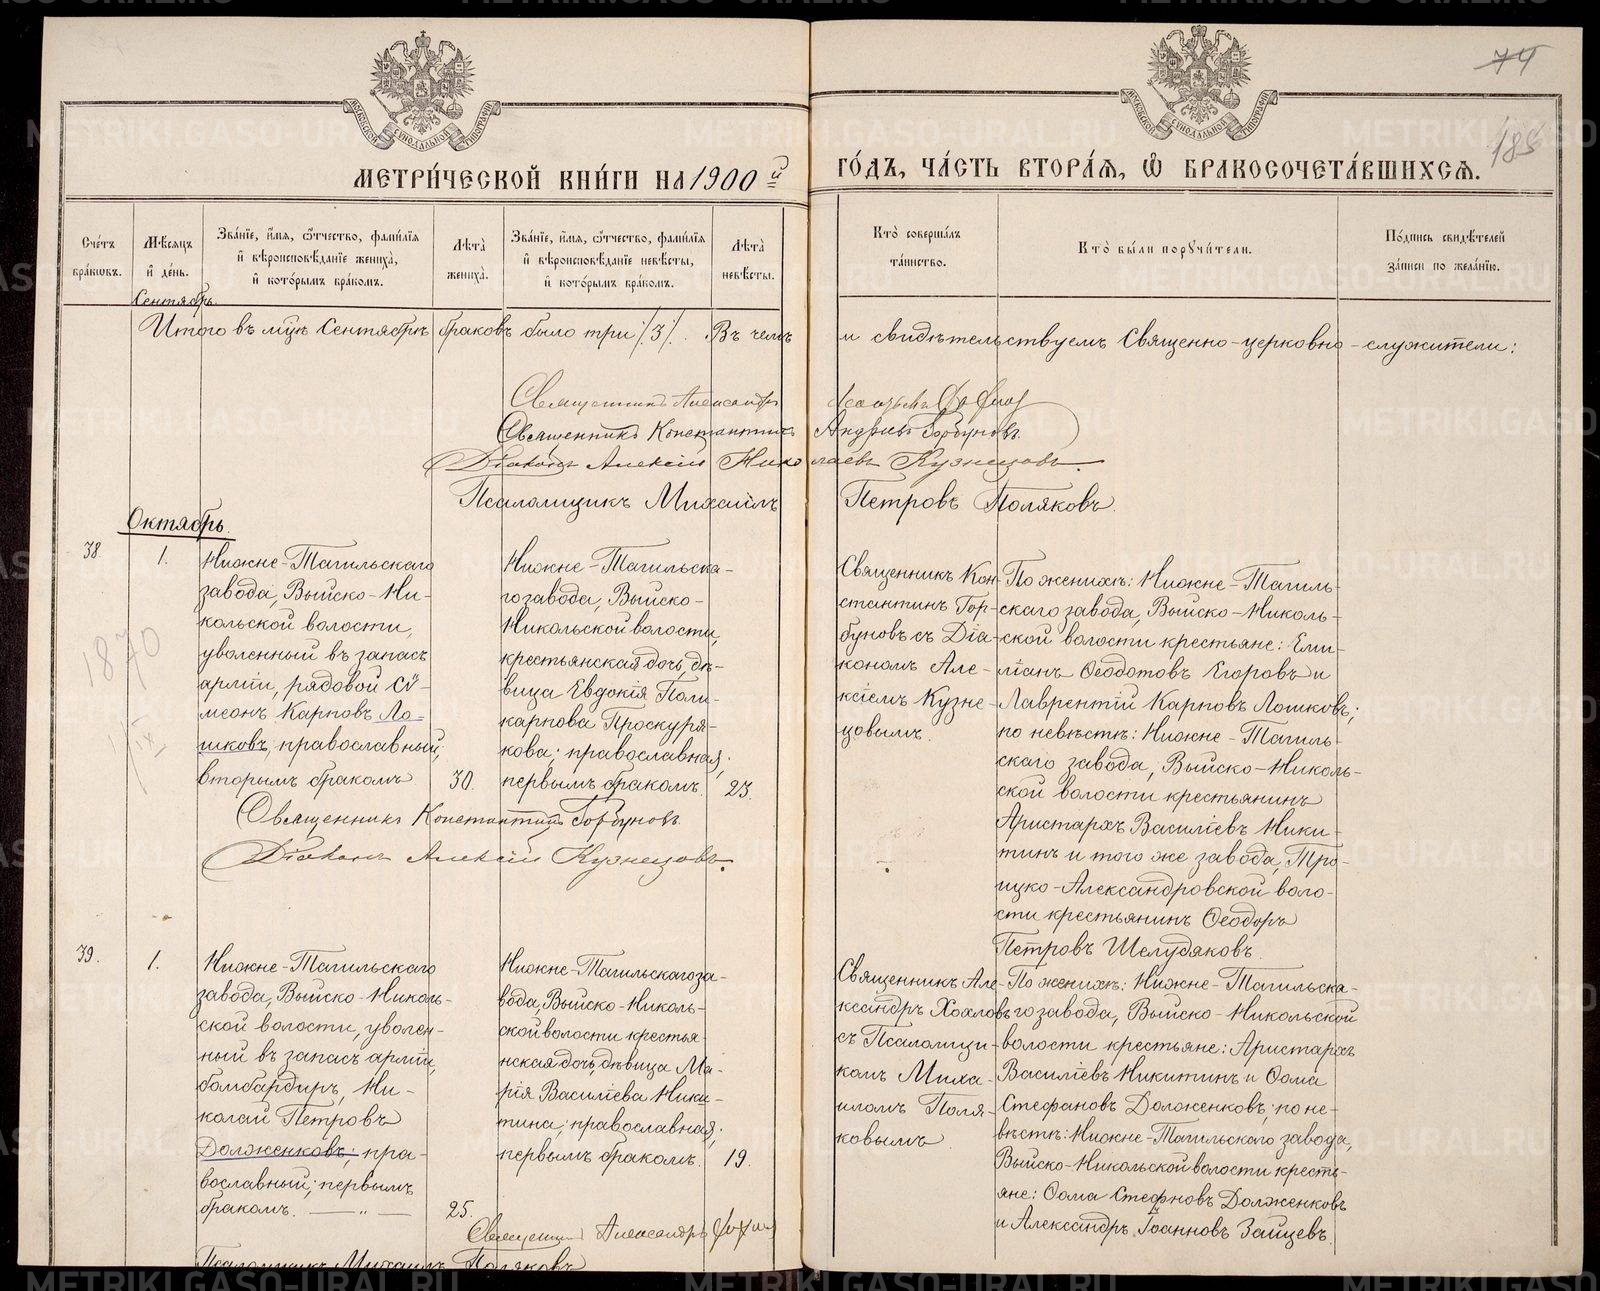 74
185
МОСКОВСКОЙ СУНОДАЛЬНОЙ ТИПОГРАФІИ
МОСКОВСКОЙ СУНОДАЛЬНОЙ ТИПОГРАФІИ
МЕТРИ́ЧЕСКОЙ КНИ́ГИ НА 1900й ГО́ДЪ, ЧА́СТЬ ВТОРА́Ѧ, Ѽ БРАКОСОЧЕТА́ВШИХСѦ.
Сче́тъ бра́ковъ.
Мѣ́сяцъ и҆ де́нь.
Зва́нїе, и҆́мя, ѻ҆́тчество, фами́лїя и҆ вѣроисповѣ́данїе жениха̀, и҆ кото́рымъ бра́комъ.
Лѣта̀ жениха̀.
Зва́нїе, и҆́мя, ѻ҆́тчество, фами́лїя и҆ вѣроисповѣ́данїе невѣ́сты, и҆ кото́рымъ бра́комъ.
Лѣта̀ невѣ́сты.
Кто̀ соверша́лъ та́инство.
Кто̀ бы́ли порꙋчи́тели.
По́дпись свидѣ́телей за́писи по жела́нїю.
Сентябрь.
Итого въ м҃цѣ Сентябрѣ браковъ было три /3/. Въ чемъ и свидѣтельствуемъ Священно-церковно-служители:
Священникъ Александръ
Священникъ Константинъ Андреевъ Горбуновъ.
Діаконъ Алексій Николаевъ Кузнецовъ.
Псаломщикъ Михаилъ Петровъ Поляковъ.
Октябрь.
38.
1.
1870
Нижне-Тагильскаго
завода, Выйско-Ни-
кольской волости,
уволенный въ запасъ
арміи, рядовой Сѵ-
меонъ Карповъ Ло=
шковъ, православный,
вторымъ бракомъ
30.
Нижне-Тагильска-
го завода, Выйско-
Никольской волости,
крестьянская дочь, дѣ-
вица Евдокія Поли-
карпова Проскуря-
кова; православная;
первымъ бракомъ.
23.
Священникъ Кон-
стантинъ Гор-
буновъ съ Діа-
кономъ Але-
ксіемъ Кузне-
цовымъ.
По женихѣ: Нижне-Тагиль-
скаго завода, Выйско-Николь-
ской волости крестьяне: Еми-
ліанъ Ѳеодотовъ Егоровъ и
Лаврентій Карповъ Лошковъ;
по невѣстѣ: Нижне-Тагиль-
скаго завода, Выйско-Николь-
ской волости крестьянинъ
Аристархъ Василіевъ Ники-
тинъ и того же завода, Тро-
ицко-Александровской воло-
сти крестьянинъ Ѳеодоръ
Петровъ Шелудяковъ.
Священникъ Константинъ Горбуновъ.
Діаконъ Алексій Кузнецовъ.
39.
1.
Нижне-Тагильскаго
завода, Выйско-Николь-
ской волости, уволен-
ный въ запасъ арміи,
бомбардиръ, Ни-
колай Петровъ
Долженковъ; пра-
вославный; первымъ
бракомъ. — „ —
25.
Нижне-Тагильскаго за-
вода, Выйско-Николь-
ской волости крестья-
нская дочь, дѣвица Ма-
рія Василіева Ники-
тина; православная;
первымъ бракомъ.
19.
Священникъ Але-
ксандръ Хохловъ
съ Псаломщи-
комъ Миха-
иломъ Поля-
ковымъ
По женихѣ: Нижне-Тагильска-
го завода, Выйско-Никольской
волости крестьяне: Аристархъ
Василіевъ Никитинъ и Ѳома
Стефановъ Долженковъ; по не-
вѣстѣ: Нижне-Тагильскаго завода,
Выйско-Никольской волости кресть-
яне: Ѳома Стефановъ Долженковъ
и Александръ Іоанновъ Зайцевъ.
Священникъ Александръ
Псаломщикъ Михаилъ Поляковъ
METRIKI.GASO-URAL.RU